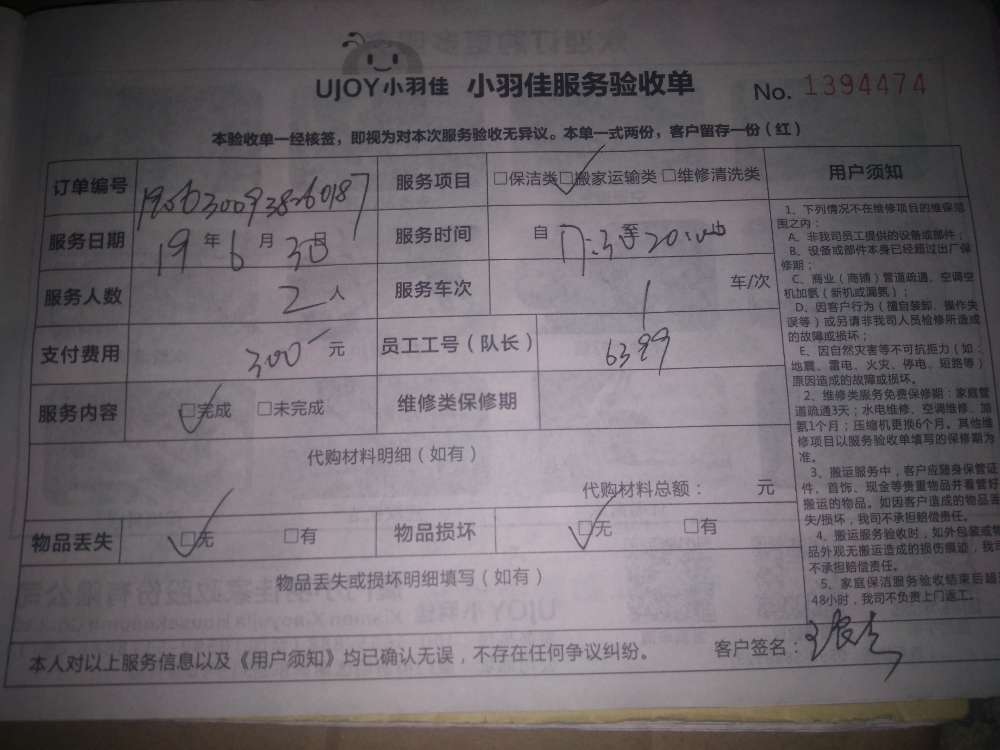 UJOY小羽佳 小羽佳服务验收单 No. 1394474
本验收单一经核签，即视为对本次服务验收无异议。本单一式两份，客户留存一份（红）
订单编号 服务项目 □保洁类 □搬家运输类 □维修清洗类
服务日期 19 年 6 月 30 日 服务时间 自 至
服务人数 2 人 服务车次 1 车/次
支付费用 300 元 员工工号（队长） 6399
服务内容 □完成 □未完成 维修类保修期
代购材料明细（如有）
代购材料总额： 元
物品丢失 □无 □有 物品损坏 □无 □有
物品丢失或损坏明细填写（如有）
本人对以上服务信息以及《用户须知》均已确认无误，不存在任何争议纠纷。 客户签名：
用户须知
1、下列情况不在维修项目的维保范
围之内：
A、非我司员工提供的设备或部件；
B、设备或部件本身已经超过出厂保
修期；
C、商业（商铺）管道疏通、空调空
机加氨（新机或漏氨）；
D、因客户行为（擅自装卸、操作失
误等）或另请非我司人员检修所造成
的故障或损坏；
E、因自然灾害等不可抗拒力（如：
地震、雷电、火灾、停电、短路等）
原因造成的故障或损坏。
2、维修类服务免费保修期：家庭管
道疏通3天；水电维修、空调维修、加
氨1个月；压缩机更换6个月。其他维
修项目以服务验收单填写的保修期为
准。
3、搬运服务中，客户应随身保管证
件、首饰、现金等贵重物品并看管好
搬运的物品。如因客户造成的物品丢
失/损坏，我司不承担赔偿责任。
4、搬运服务验收时，如外包装或
品外观无搬运造成的损伤痕迹，我司
不承担赔偿责任。
5、家庭保洁服务验收结束后超
48小时，我司不负责上门返工。